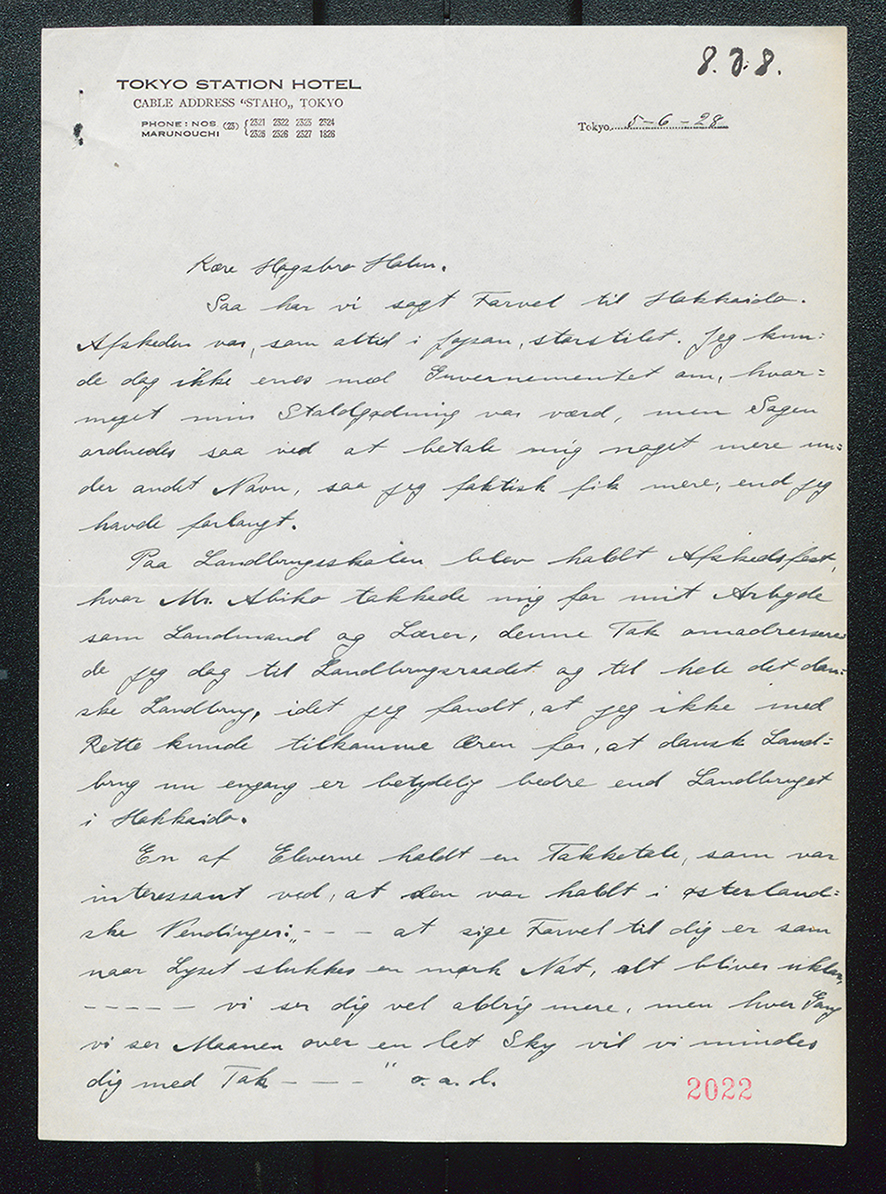 8.J.8.
TOKYO STATION HOTEL
CABLE ADDRESS “STAHO„ TOKYO
PHONE: NOS. (23) 2321 2322 2323 2324
MARUNOUCHI 2325 2326 2327 1826
Tokyo, 5-6-28
Kære Høgsbro Holm.
Saa har vi sagt Farvel til Hokkaido.
Afskeden var, som altid i Japan, storstilet. Jeg kun=
de dog ikke enes med Guvernementet om, hvor=
meget min Staldgødning var værd, men Sagen
ordnedes saa ved at betale mig noget mere un=
der andet Navn, saa jeg faktisk fik mere, end jeg
havde forlangt.
Paa Landbrugsskolen blev holdt Afskedsfest,
hvor Mr. Abiko takkede mig for mit Arbejde
som Landmand og Lærer, denne Tak omadressere
de jeg dog til Landbrugsraadet og til hele det dan=
ske Landbrug, idet jeg fandt, at jeg ikke med
Rette kunde tilkomme Æren for, at dansk Land=
brug nu engang er betydelig bedre end Landbruget
i Hokkaido.
En af Eleverne holdt en Takketale, som var
interessant ved, at den var holdt i østerland=
ske Vendinger: „- - - at sige Farvel til dig er som
naar Lyset slukkes en mørk Nat, alt bliver uklart,
- - - - - vi ser dig vel aldrig mere, men hver Gang
vi ser Maanen over en let Sky vil vi mindes
dig med Tak - - - - " o.a.l.
2022